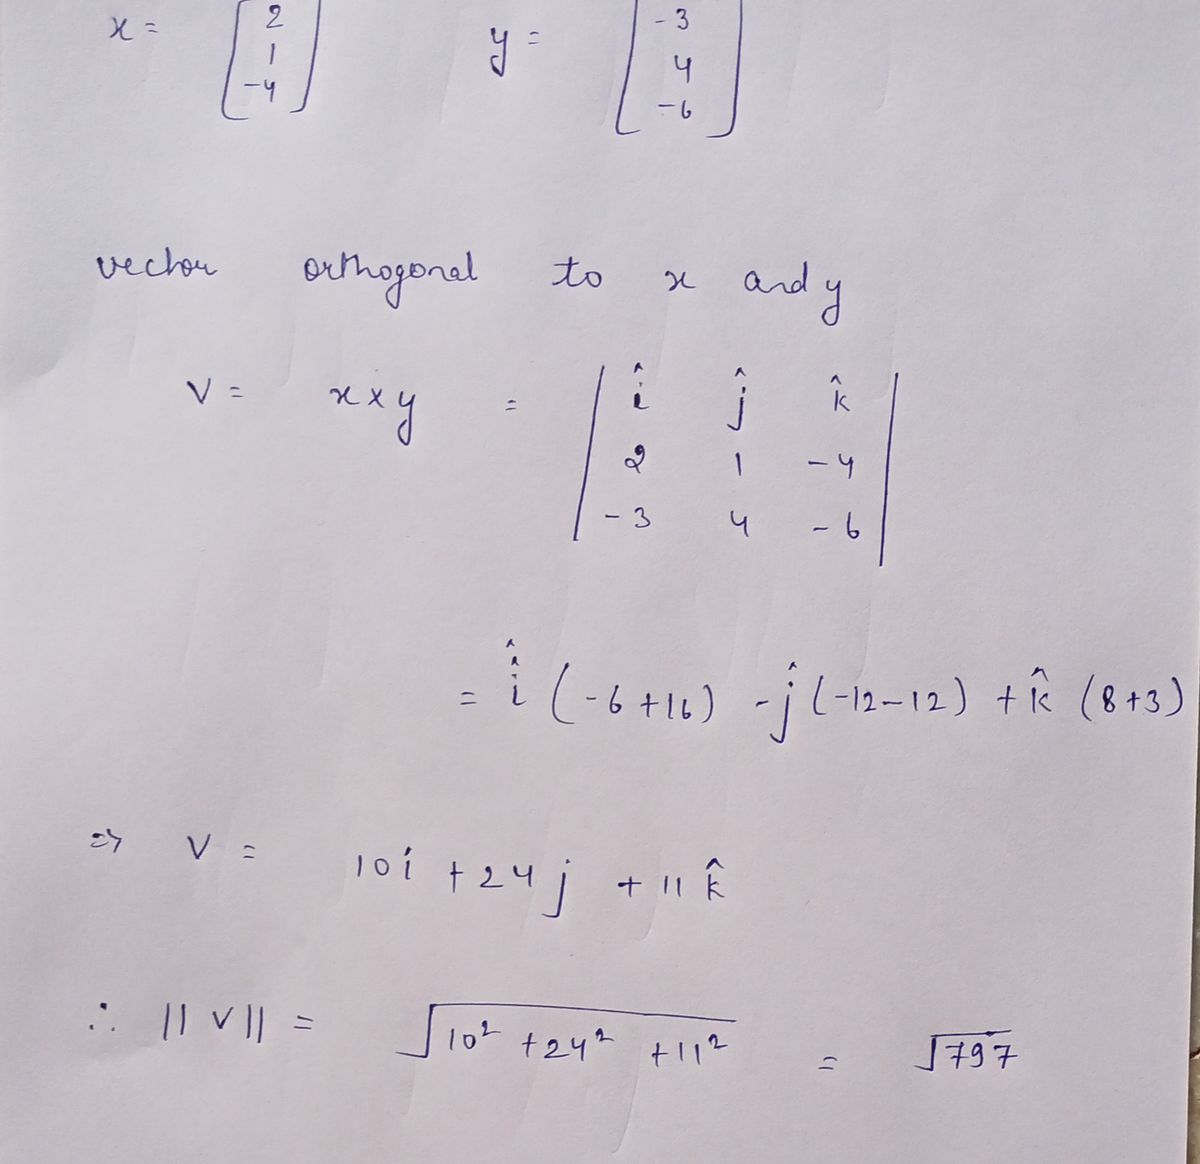 x = [ 2 1 -4 ] y = [ -3 4 -6 ]
vector orthogonal to x and y
V = x × y = | î ĵ k̂ |
| 2 1 -4 |
| -3 4 -6 |
= î (-6+16) - ĵ (-12-12) + k̂ (8+3)
=> V = 10î + 24j + 11k̂
∴ ||V|| = √(10² + 24² + 11²) = √797